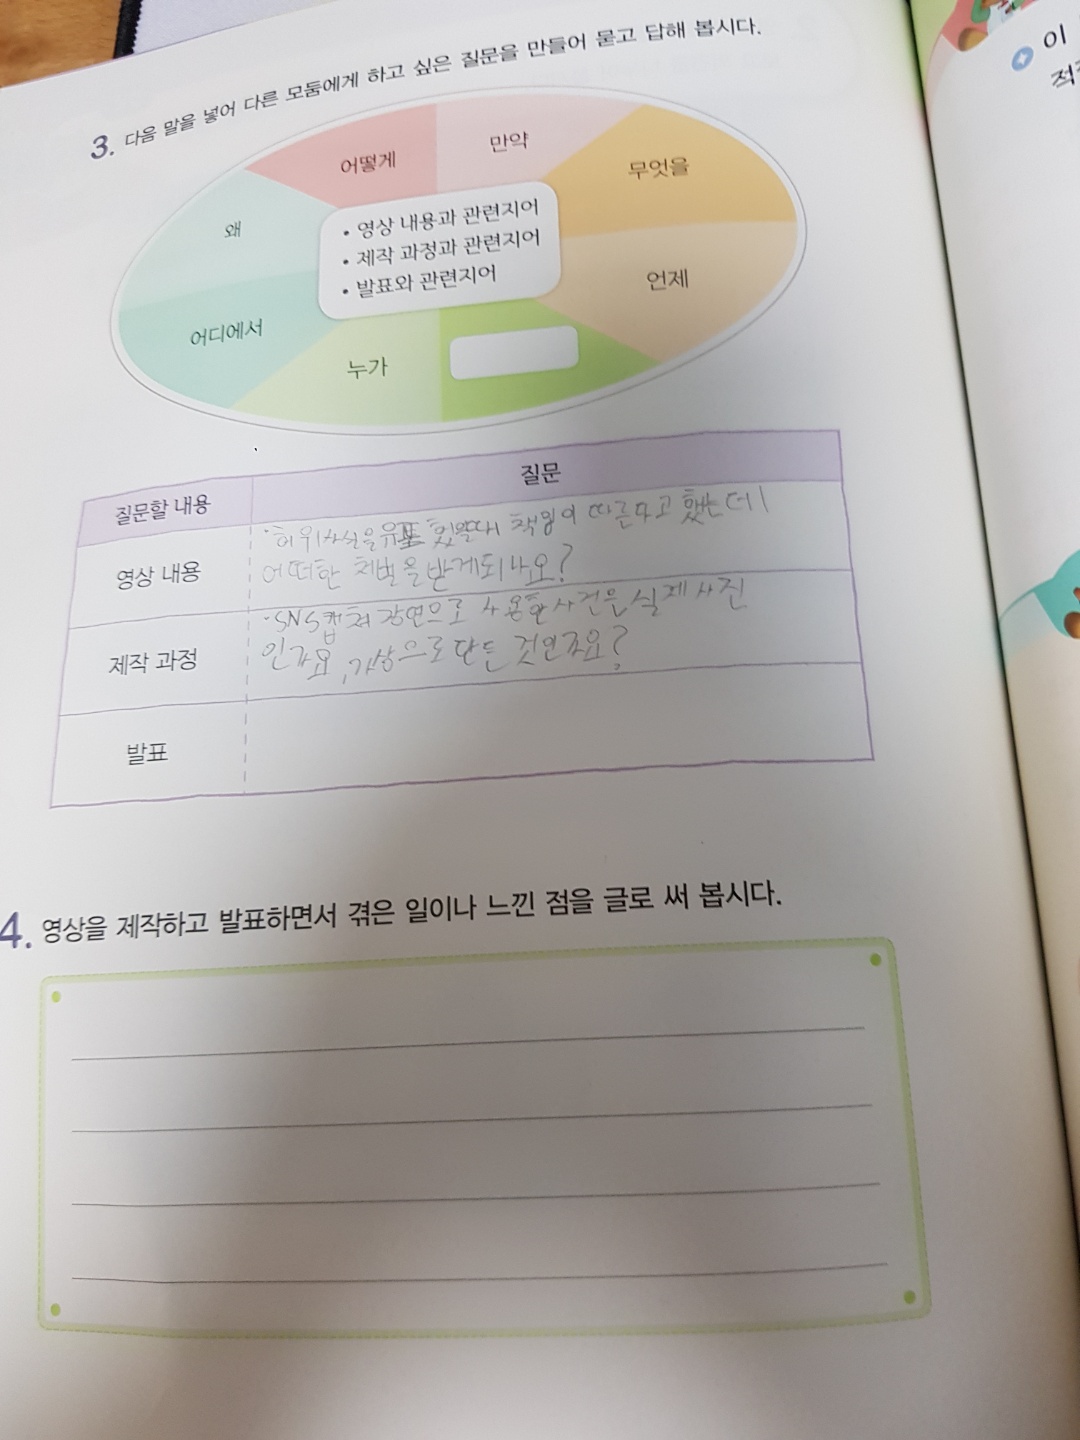 3. 다음 말을 넣어 다른 모둠에게 하고 싶은 질문을 만들어 묻고 답해 봅시다.
어떻게
만약
무엇을
왜
• 영상 내용과 관련지어
• 제작 과정과 관련지어
• 발표와 관련지어
언제
어디에서
누가
질문할 내용
질문
영상 내용
·허위사실을 유포 했을때 책임이 따른다고 했는데
어떠한 처벌을 받게되나요?
제작 과정
·SNS 캡처 장면으로 사용한 사건은 실제 사진
인가요, 가상으로 만든 것인가요?
발표
4. 영상을 제작하고 발표하면서 겪은 일이나 느낀 점을 글로 써 봅시다.
이